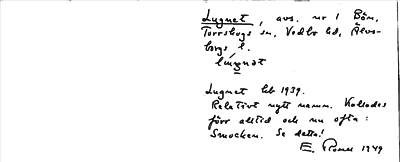 Lugnet, avs. nr 1 Bön,
Torrskogs sn, Vedbo hd, Älvs-
borgs l.
Lugnet hb 1939.
Relativt nytt namn. Kallades
förr alltid och nu ofta:
Smocken. Se detta!
E. Rosell 1949